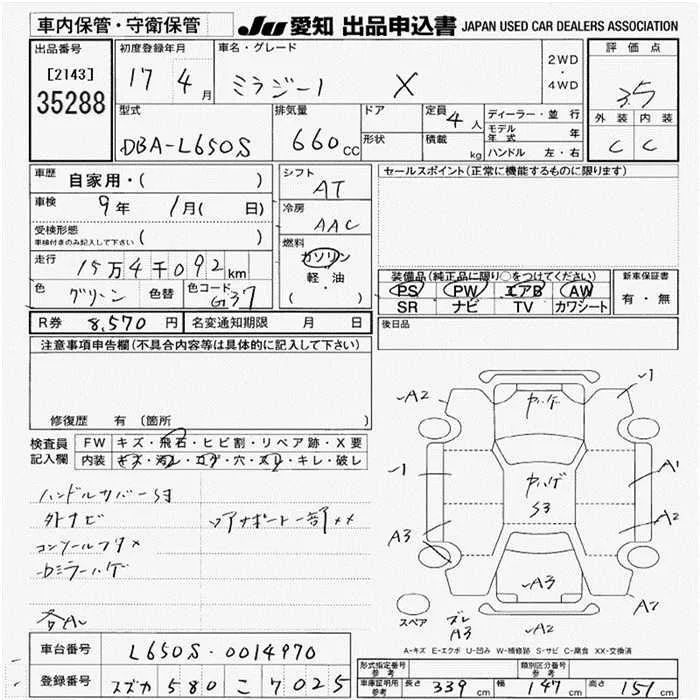 車内保管・守衛保管
JU 愛知 出品申込書 JAPAN USED CAR DEALERS ASSOCIATION
出品番号
[2143]
35288
初度登録年月
17 4月
車名・グレード
ミラジーノ X
2WD
・
4WD
評価点
3.5
外装 内装
C C
型式
DBA-L650S
排気量
660cc
ドア
形状
定員
4人
積載
kg
ディーラー・並行
モデル年式 年
ハンドル 左・右
車歴
自家用・( )
車検
9年 1月( 日)
受検形態
車検付きのみ記入して下さい ( )
走行
15万4千092km
色
グリーン
色替
色コード
G37
シフト
AT
冷房
AAC
燃料
ガソリン
・
軽 油
( )
セールスポイント(正常に機能するものに限ります)
装備品(純正品に限り〇をつけてください)
PS PW エアB AW
SR ナビ TV カワシート
新車保証書
有・無
R券 8,570円
名変通知期限 月 日
後日品
注意事項申告欄(不具合内容等は具体的に記入して下さい)
修復歴 有 〔箇所
検査員記入欄
FW キズ・飛石・ヒビ割・リペア跡・X要
内装 キズ・汚レ・コゲ・穴・スレ・キレ・破レ
外ナビ
各A
A2
1
ヤハゲ
1
A1
ヤハゲ
S3
A2
A3
A3
A2
A2
スペア
ズレ
A3
A-キズ E-エクボ U-凹み W-補修跡 S-サビ C-腐食 XX-交換済
車台番号
L650S-0014970
登録番号
スズカ 580 こ 7025
形式指定番号
参考
類別区分番号
参考
車庫証明用
参考
長さ 339cm
幅 147cm
高さ 151cm